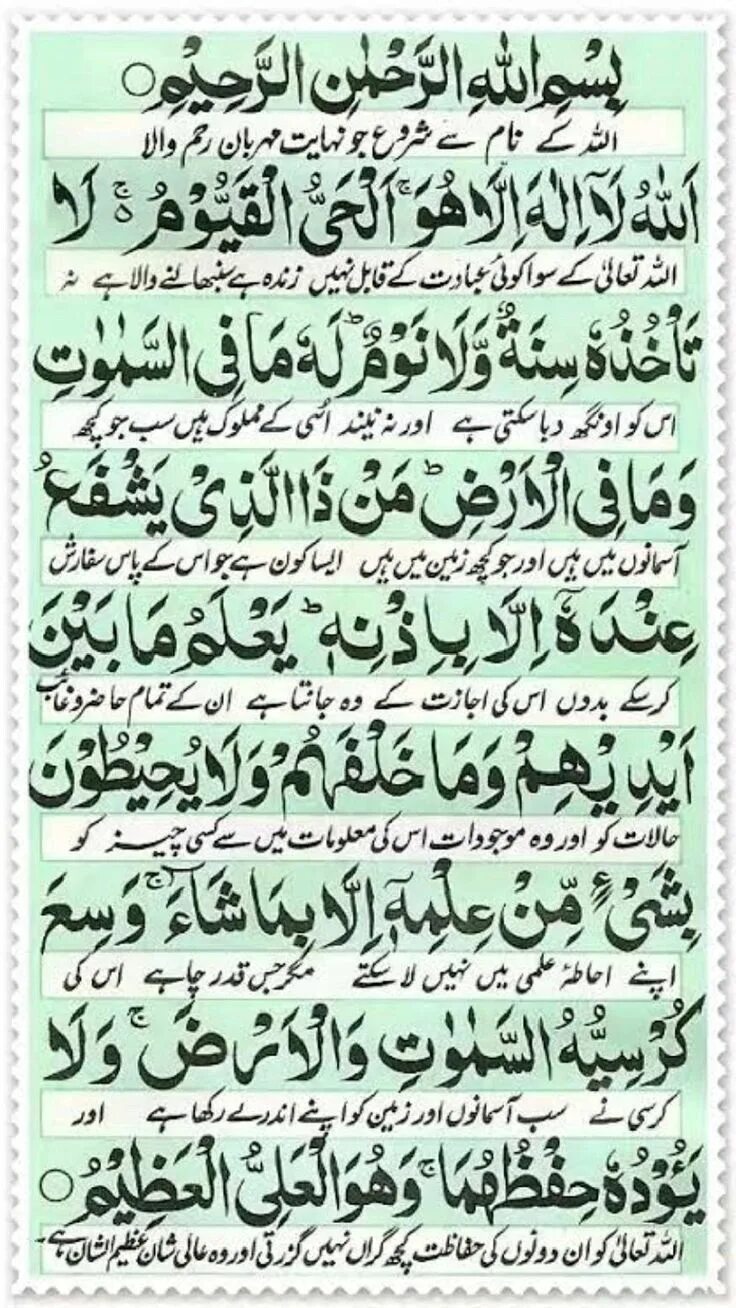 بِسْمِ اللهِ الرَّحْمٰنِ الرَّحِيْمِ ○
اللہ کے نام سے شروع جو نہایت مہربان رحم والا
اَللّٰهُ لَآ اِلٰهَ اِلَّا هُوَ ۚ اَلْحَیُّ الْقَیُّوْمُ ۚ۬ لَا
اللہ تعالیٰ کے سوا کوئی عبادت کے قابل نہیں زندہ ہے سنبھالنے والا ہے نہ
تَاْخُذُهٗ سِنَةٌ وَّلَا نَوْمٌ ؕ لَهٗ مَا فِی السَّمٰوٰتِ
اس کو اونگھ دبا سکتی ہے اور نہ نیند اسی کے مملوک ہیں سب جو کچھ
وَمَا فِی الْاَرْضِ ؕ مَنْ ذَا الَّذِیْ یَشْفَعُ
آسمانوں میں ہیں اور جو کچھ زمین میں ہیں ایسا کون ہے جو اس کے پاس سفارش
عِنْدَهٗۤ اِلَّا بِاِذْنِهٖ ؕ یَعْلَمُ مَا بَیْنَ
کرسکے بدوں اس کی اجازت کے وہ جانتا ہے ان کے تمام حاضر و غائب
اَیْدِیْهِمْ وَمَا خَلْفَهُمْ وَلَا یُحِیْطُوْنَ
حالات کو اور وہ موجودات اس کی معلومات میں سے کسی چیز کو
بِشَیْءٍ مِّنْ عِلْمِهٖۤ اِلَّا بِمَا شَآءَ ۚ وَسِعَ
اپنے احاطۂ علمی میں نہیں لا سکتے مگر جس قدر چاہے اس کی
كُرْسِیُّهُ السَّمٰوٰتِ وَالْاَرْضَ ۚ وَلَا
کرسی نے سب آسمانوں اور زمین کو اپنے اندر لے رکھا ہے اور
یَـُٔوْدُهٗ حِفْظُهُمَا ۚ وَهُوَ الْعَلِیُّ الْعَظِیْمُ ○
اللہ تعالیٰ کو ان دونوں کی حفاظت کچھ گراں نہیں گزرتی اور وہ عالی شان عظیم الشان ہے۔